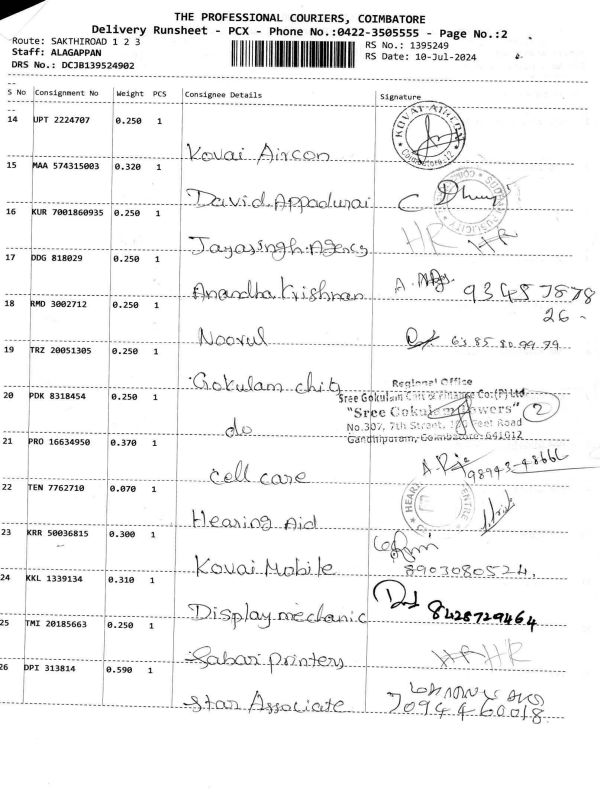 THE PROFESSIONAL COURIERS, COIMBATORE
Delivery Runsheet - PCX - Phone No.:0422-3505555 - Page No.:2
Route: SAKTHIROAD 1 2 3
RS No.: 1395249
Staff: ALAGAPPAN
RS Date: 10-Jul-2024
DRS No.: DCJB139524902
S No Consignment No Weight PCS Consignee Details Signature
14 UPT 2224707 0.250 1
KOVAI AIRCON
Coimbatore-12
Kovai Aircon
15 MAA 574315003 0.320 1
David.Appadurai
16 KUR 7001860935 0.250 1
HR HR
Jayasingh.Agency
17 DDG 818029 0.250 1
Anandha Krishnan
93457878
26
18 RMD 3002712 0.250 1
Noorul
63.85.80.99.79
19 TRZ 20051305 0.250 1
Gokulam chits
Regional Office
20 PDK 8318454 0.250 1
Sree Gokulam Chit & Finance Co.(P) Ltd
"Sree Gokulam Towers" 2
No.307, 7th Street, Feet Road
do
Gandhipuram, Coimbatore-641012
21 PRO 16634950 0.370 1
98943-48666
Cell care
22 TEN 7762710 0.070 1
HEARI
Hearing Aid
23 KRR 50036815 0.300 1
Kovai Mobile
8903080524,
24 KKL 1339134 0.310 1
Display mechanic
8428729464
25 TMI 20185663 0.250 1
HR HR
Sabari printers
26 DPI 313814 0.590 1
Star Associate
7094460018